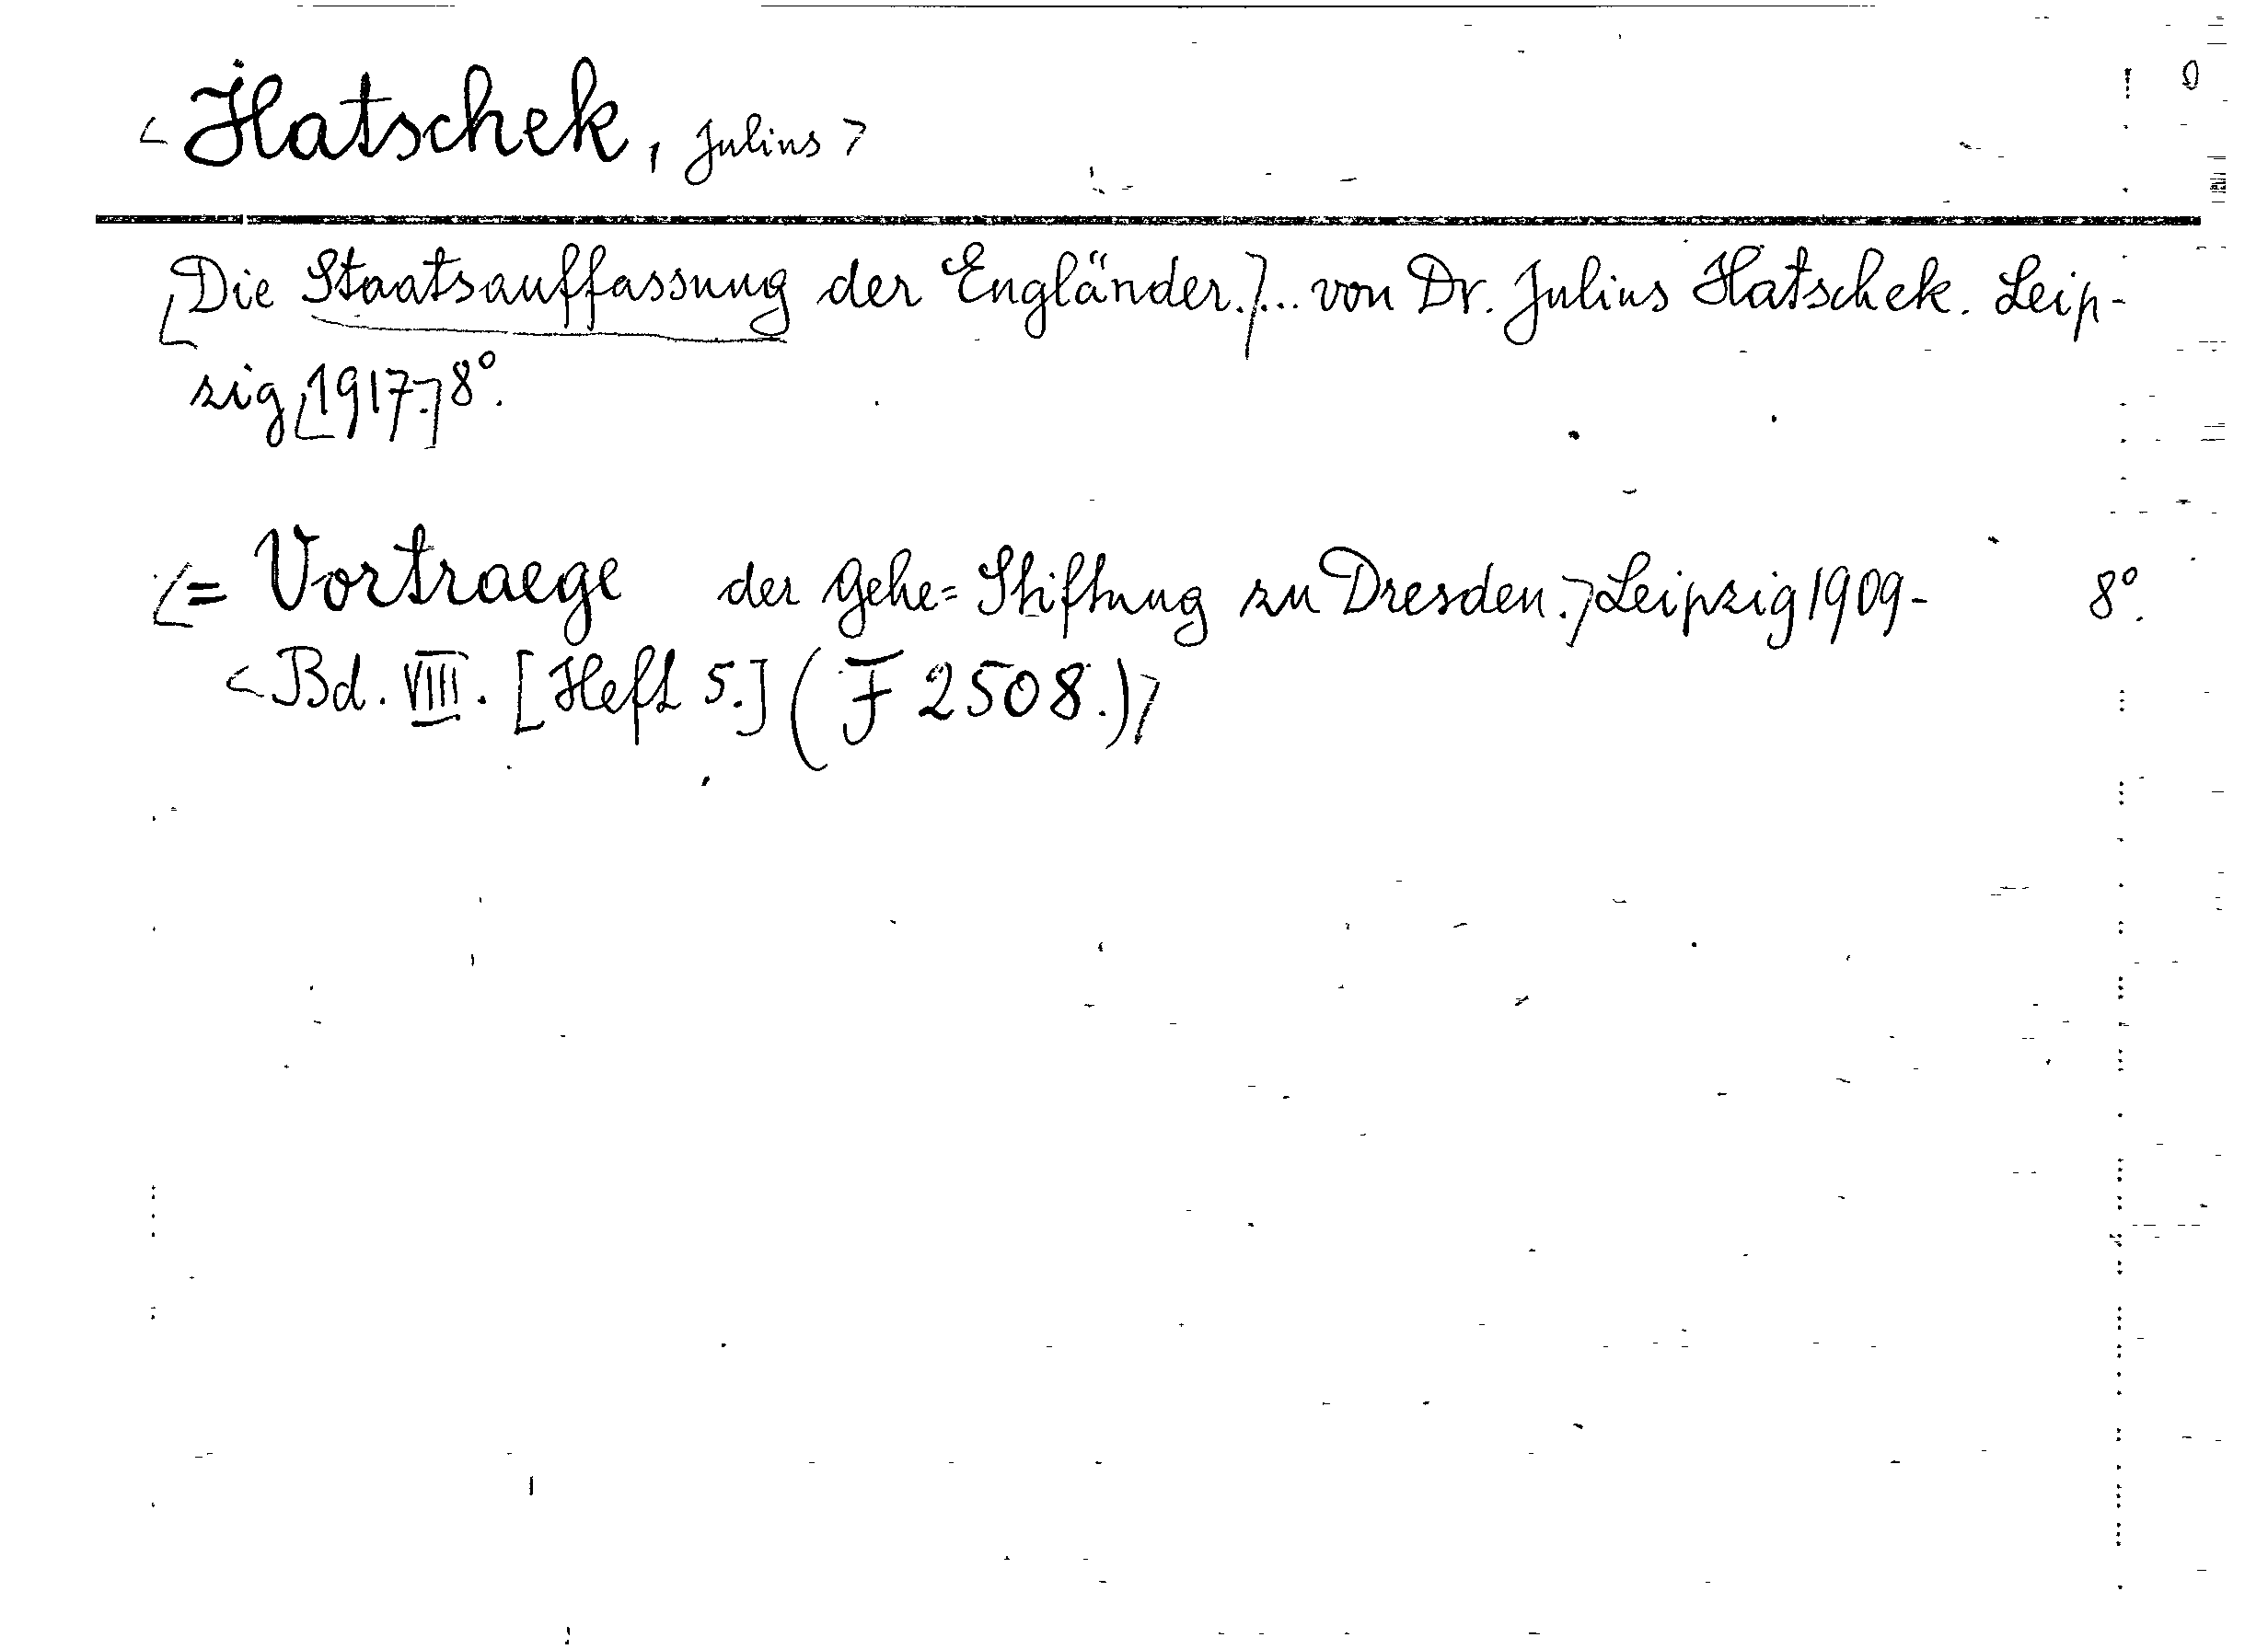 < Hatschek, Julius >
[Die Staatsauffassung der Engländer.]... von Dr. Julius Hatschek. Leip-
zig [1917.] 8°.
<= Vortraege der Gehe=Stiftung zu Dresden.> Leipzig 1909- 8°.
< Bd. VIII. [Heft 5.] (F 2508.)>